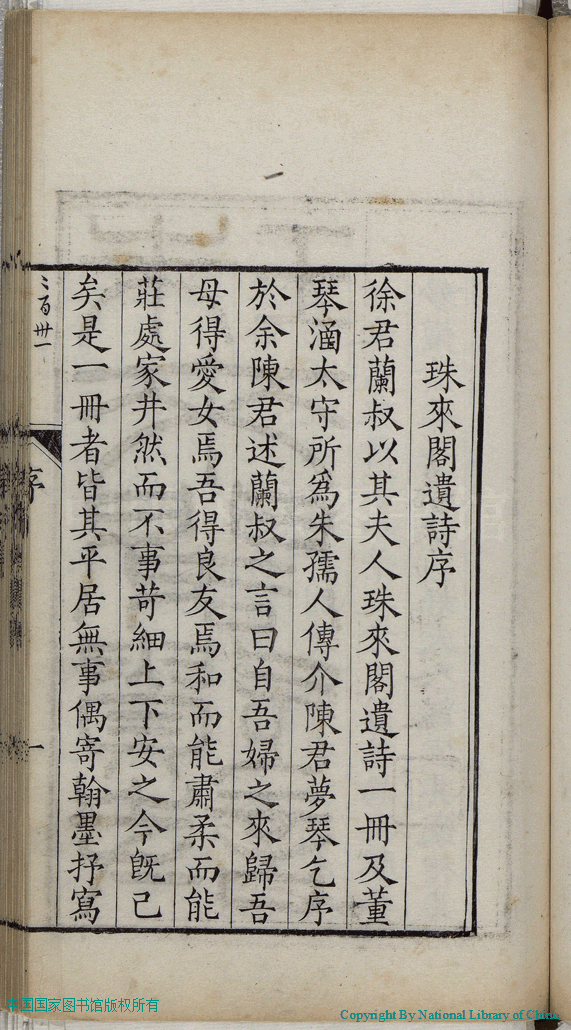 珠來閣遺詩序
徐君蘭叔以其夫人珠來閣遺詩一冊及董
琴涵太守所爲朱孺人傳介陳君夢琴乞序
於余陳君述蘭叔之言曰自吾婦之來歸吾
母得愛女焉吾得良友焉和而能肅柔而能
莊處家井然而不事苛細上下安之今旣已
矣是一冊者皆其平居無事偶寄翰墨抒寫
序
一
三百卅一
中国国家图书馆版权所有
Copyright By National Library of China